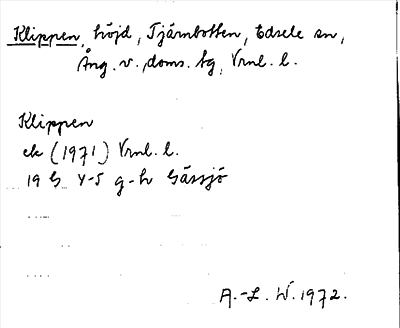 Klippen, höjd, Tjärnbotten, Edsele sn,
Ång. v. doms. tg, Vrnl. l.
Klippen
ek (1971) Vrnl. l.
19 G 4-5 g-h Gåssjö
A.-L. W. 1972.